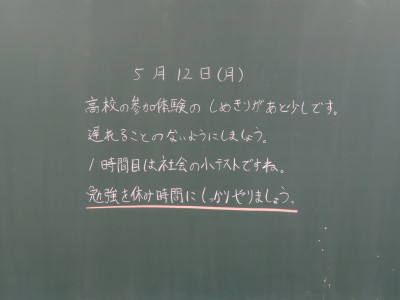 5月12日(月)
高校の参加体験のしめきりがあと少しです。
遅れることのないようにしましょう。
1時間目は社会の小テストですね。
勉強を休み時間にしっかりやりましょう。